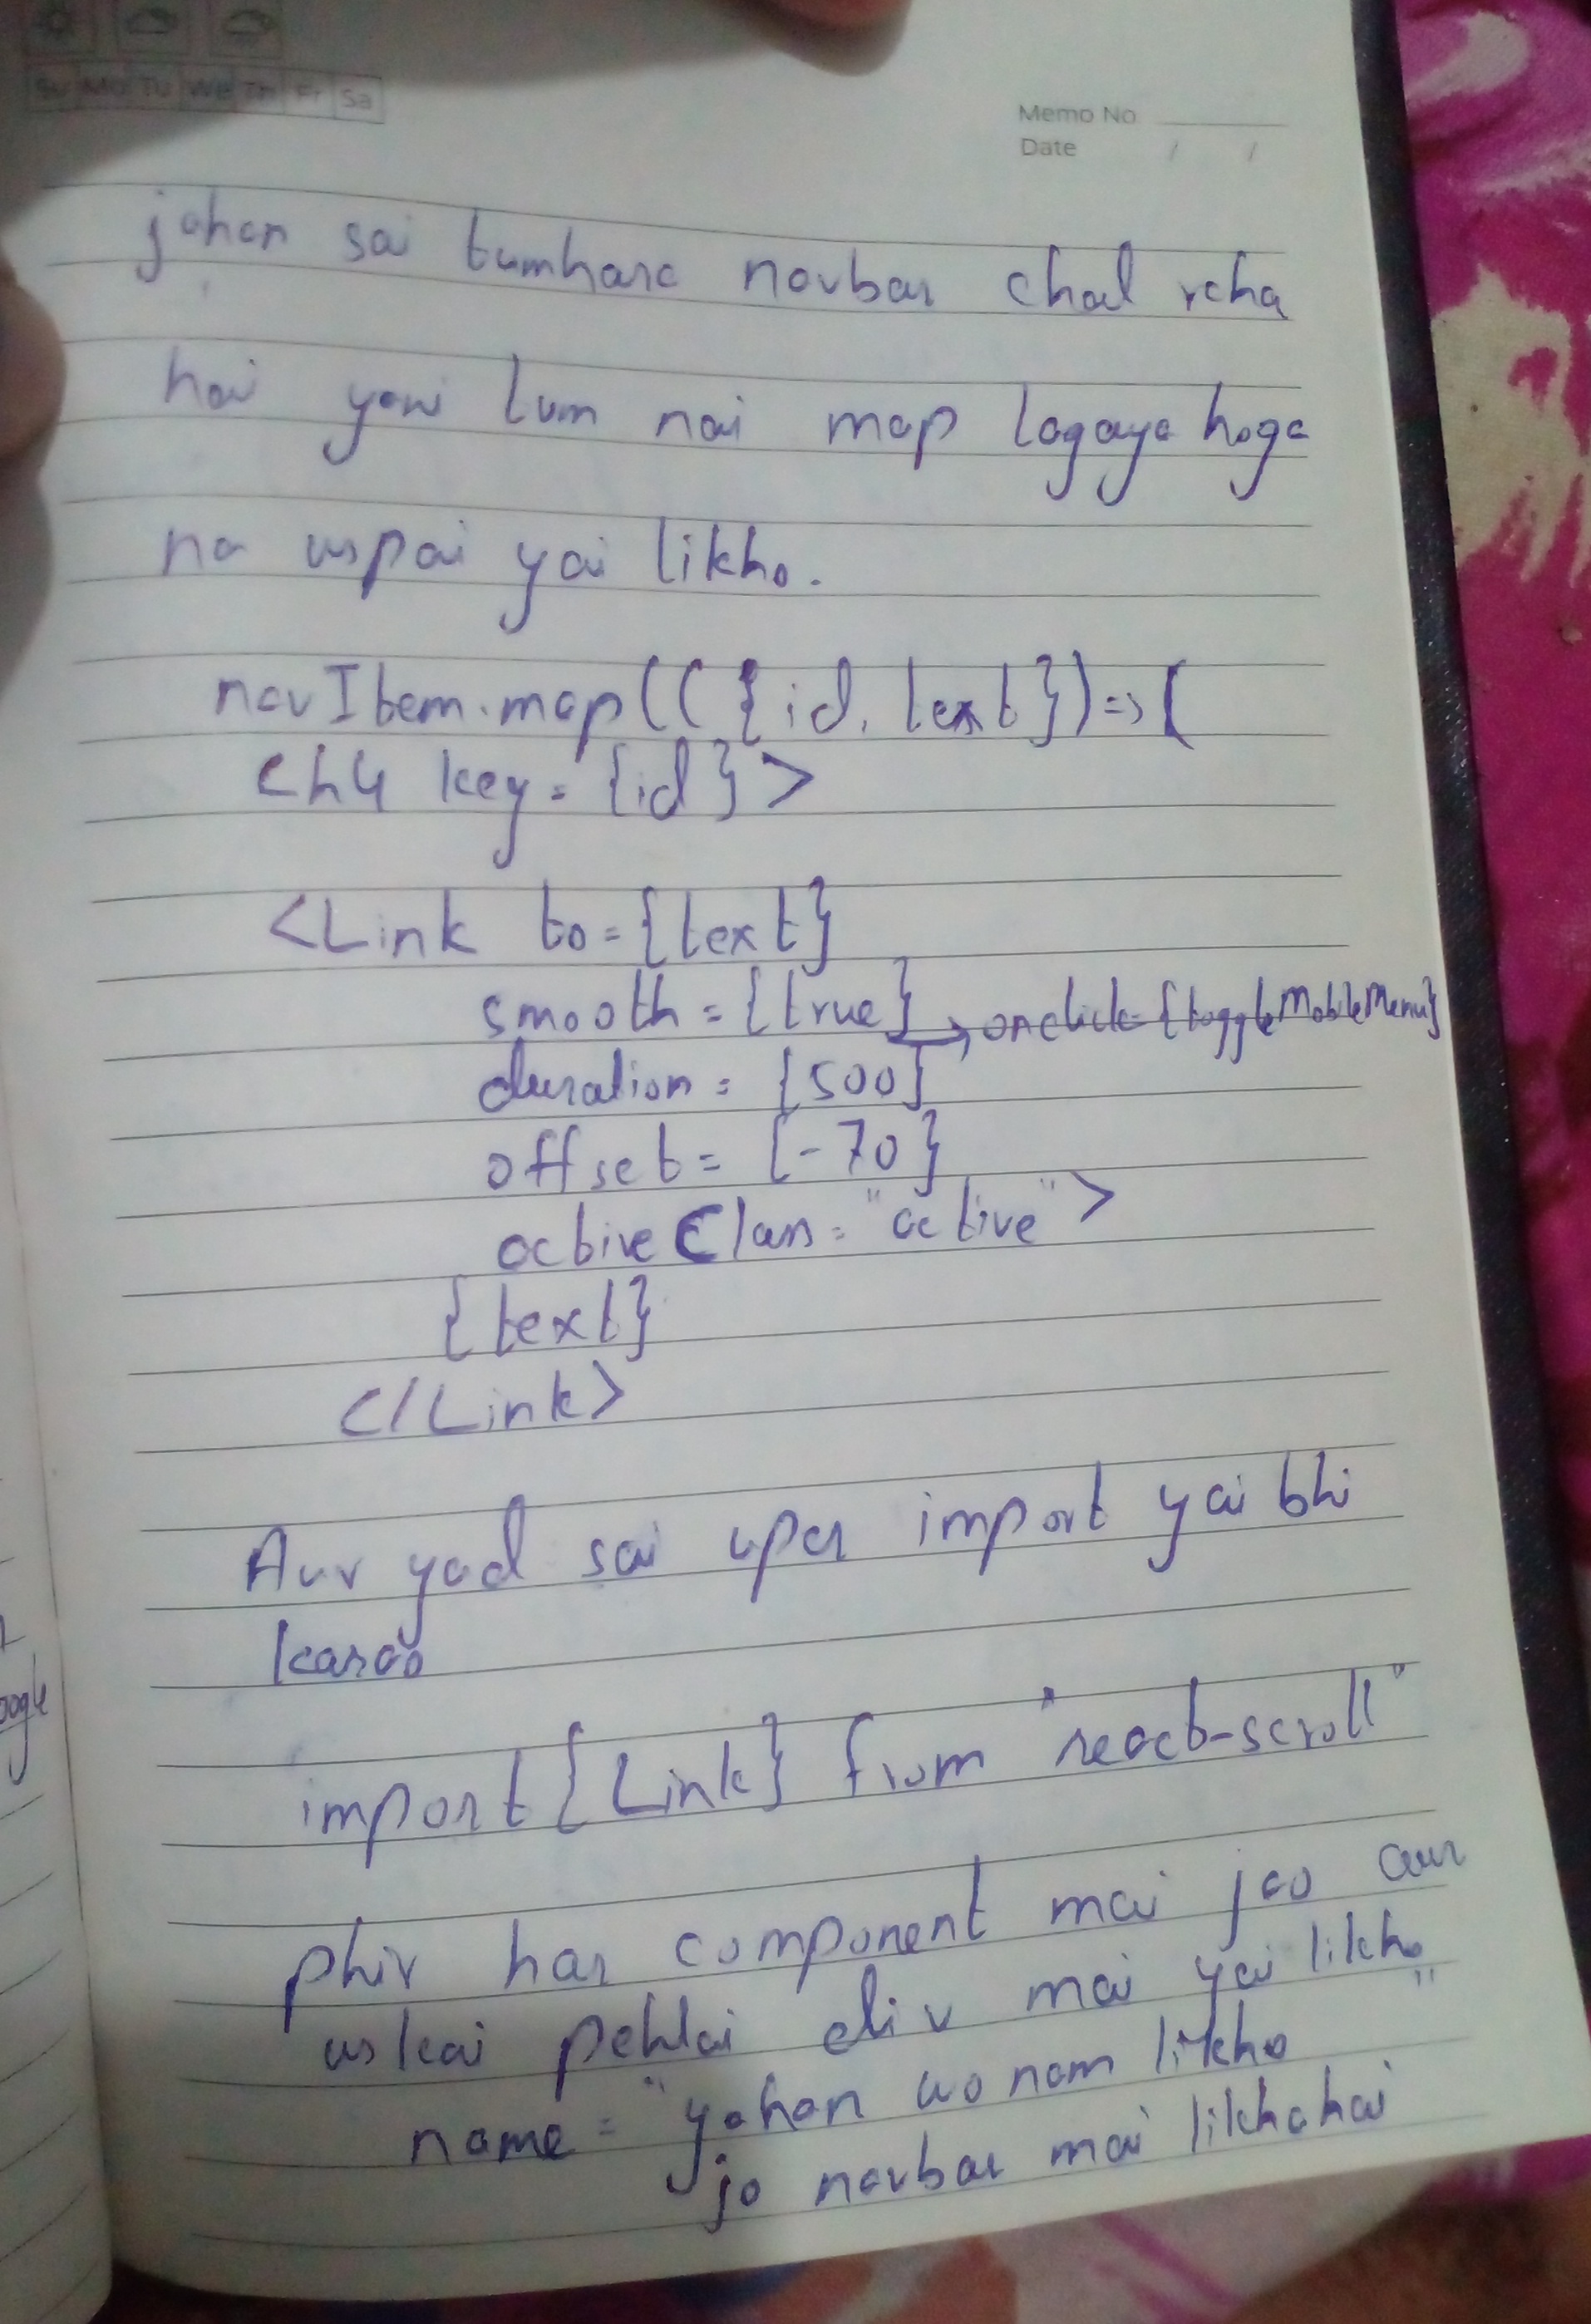 Su Mo Tu We Th Fr Sa
Memo No
Date / /
jahan sai tumhara navbar chal raha
hai yani tum nai map lagaya hoga
na uspai yai likho.
navItem.map(({id, text})=>(
<h4 key={id}>
<Link to={text}
smooth={true} → onclick={toggleMobileMenu}
duration={500}
offset={-70}
activeClass="active">
{text}
</Link>
Aur yad sai uper import yai bhi
karao
import {Link} from "react-scroll"
phir har component mai jao aur
uskai pehlai div mai yai likho
name="yahan wo nam likho"
jo navbar mai likhahai